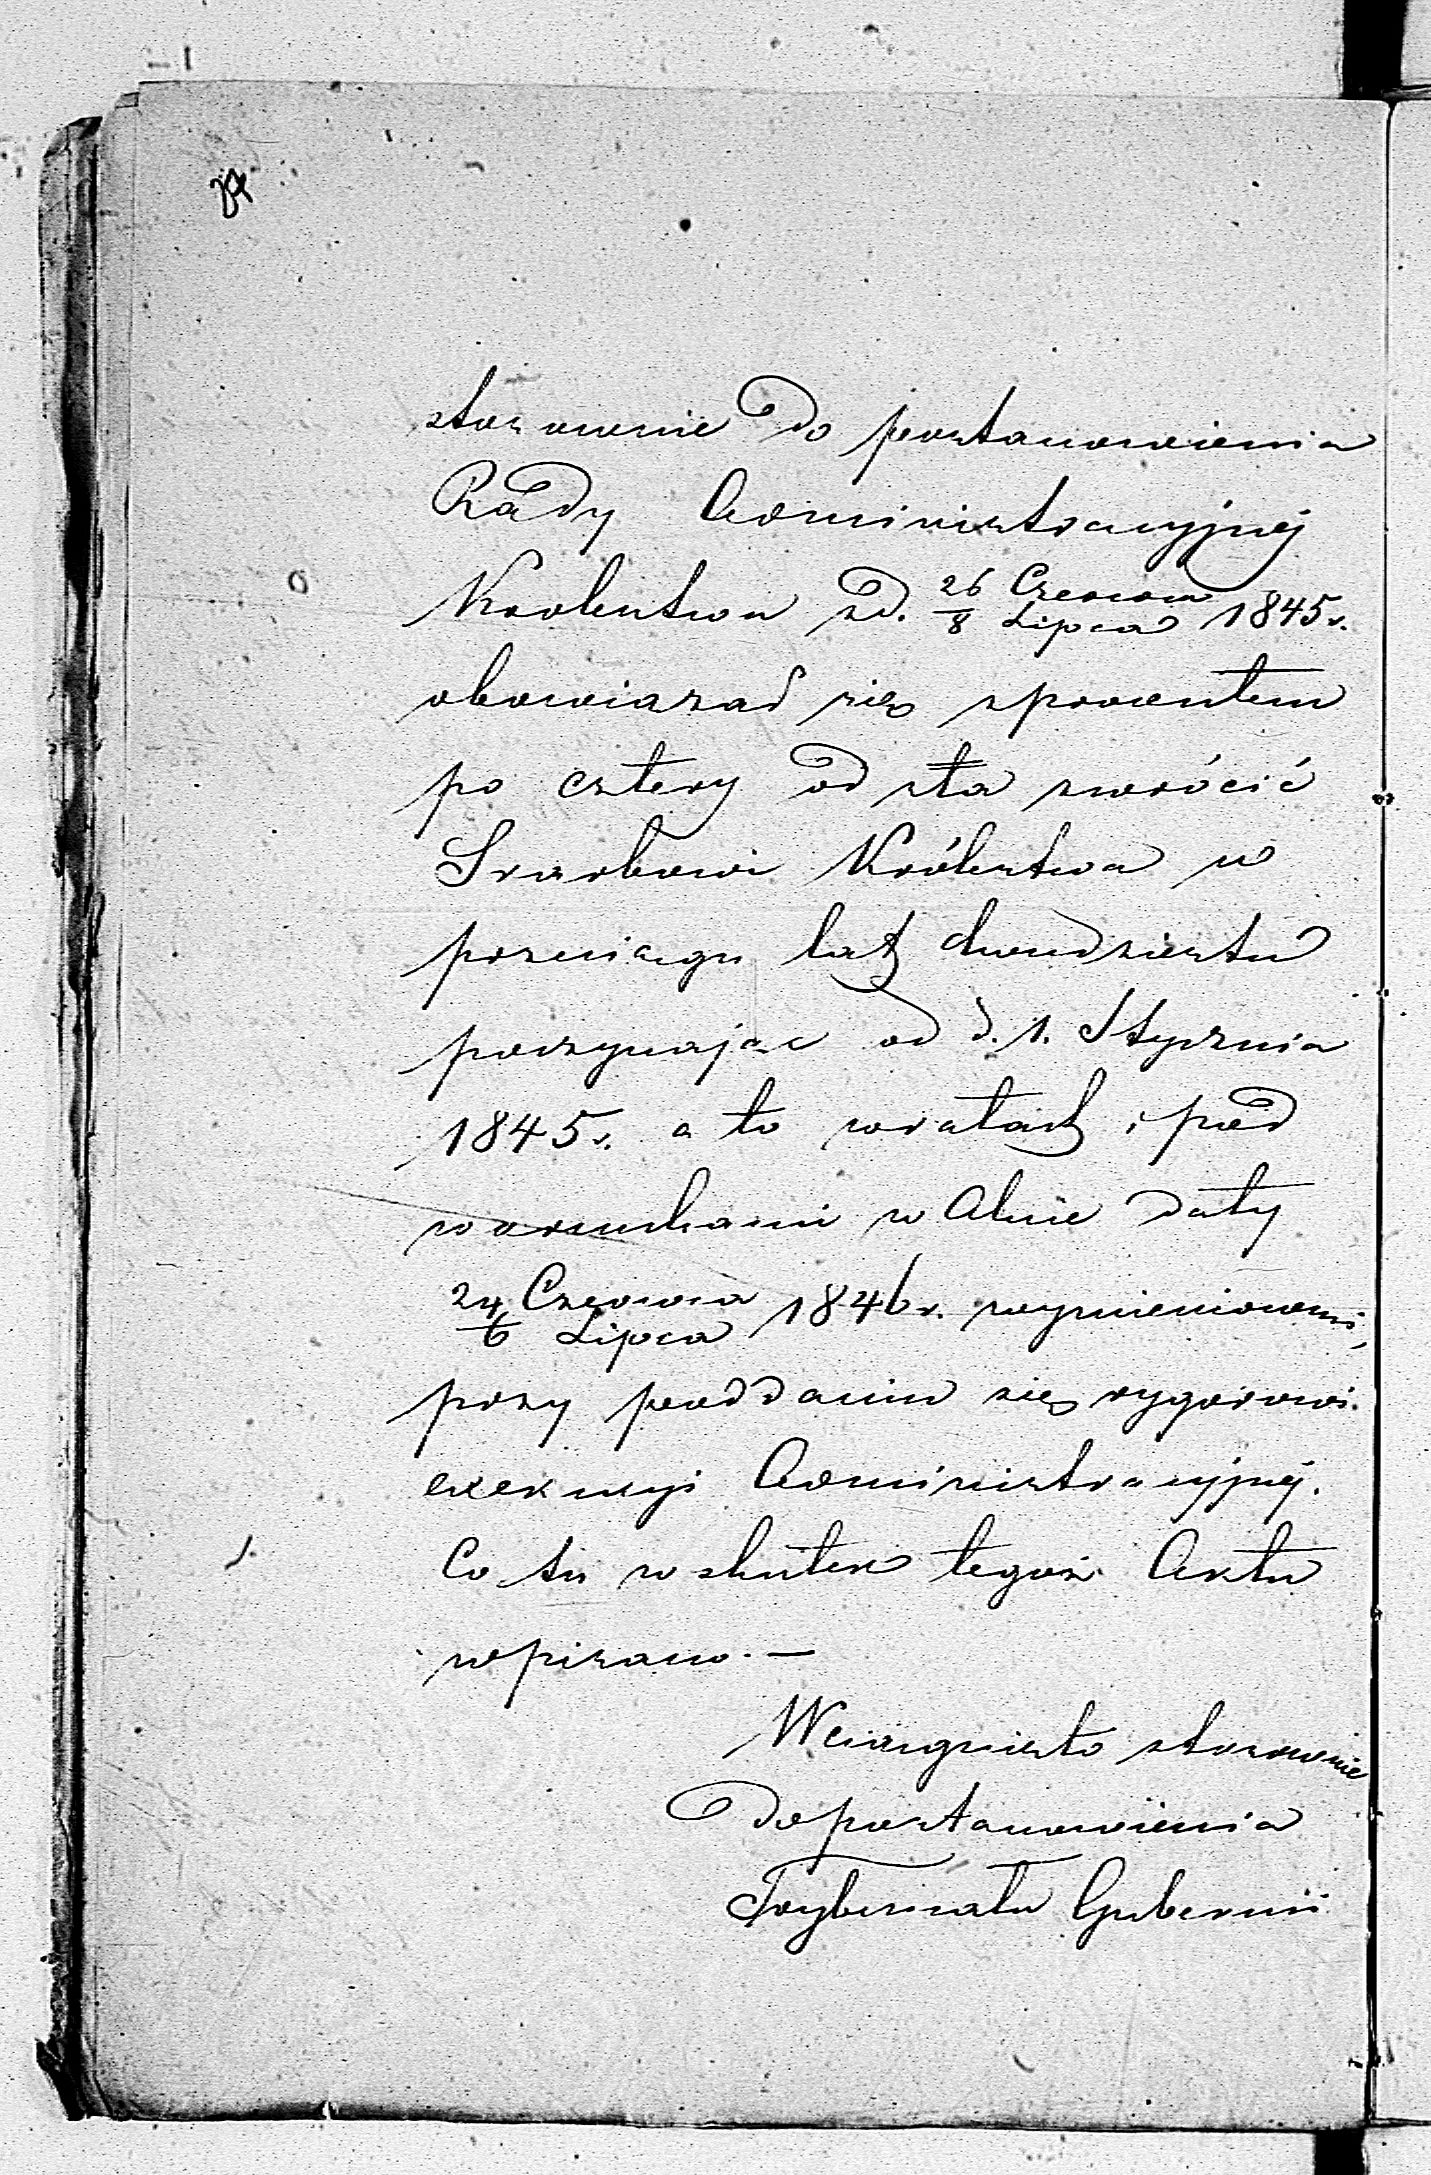 stosownie do postanowienia
Rady Administracyjnej
Krolestwa z d. 26 Czerwca / 8 Lipca 1845 r.
obowiazał się z procentem
po cztery od sta zwrócić
Skarbowi Królestwa w
przeciągu lat dwudziestu
poczynając od d. 1. Stycznia
1845 r. a to w ratach i pod
warunkami w Akcie daty
24 Czerwca / 6 Lipca 1846 r. wymienionemi,
przy poddaniu się rygorowi
exekucyi Administracyjnej.
Co tu w skutek tegoż Aktu
wpisano. —
Wciągnięto stosownie
do postanowienia
Trybunału Gubernii